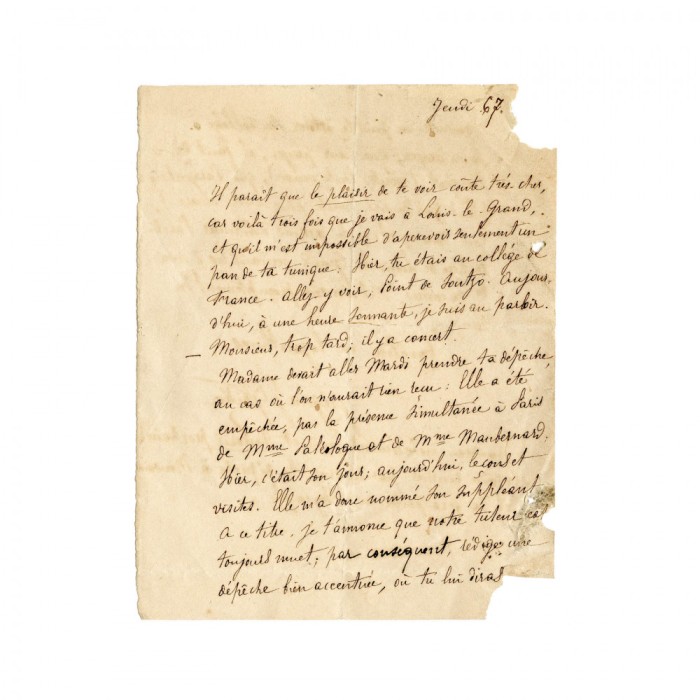 Jeudi 67.
Il paraît que le plaisir de te voir coûte très-cher,
car voilà trois fois que je vais à Louis-le-Grand,
et qu'il m'est impossible d'apercevoir seulement un
pan de ta tunique. Hier, tu étais au collège de
France. Allez y voir, Point de Soutzo. Aujour-
d'hui, à une heure sonnante, je suis au parloir.
Monsieur, trop tard; il y a concert.
Madame devait aller Mardi prendre ta dépêche,
au cas où l'on n'aurait rien reçu: Elle a été
empêchée, par la présence simultanée à Paris
de Mme Paléologue et de Mme Maubernard.
Hier, c'était son jour; aujourd'hui, le cours et
visites. Elle m'a donc nommé son suppléant
A ce titre, je t'annonce que notre tuteur est
toujours muet; par conséquent, rédige une
dépêche bien accentuée, où tu lui diras